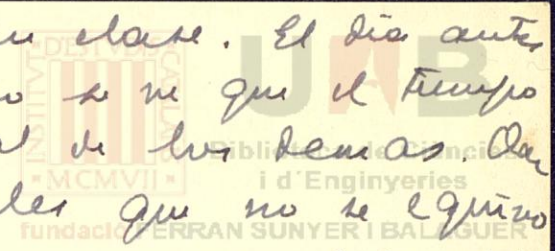 u clase. El dia antes
o se ve que el tiempo
l de los demas. Dar
les que no se equivo
INSTITVT D'ESTVDIS CATALANS
MCMVII
UAB
Biblioteca de Ciències
i d'Enginyeries
fundació FERRAN SUNYER I BALAGUER